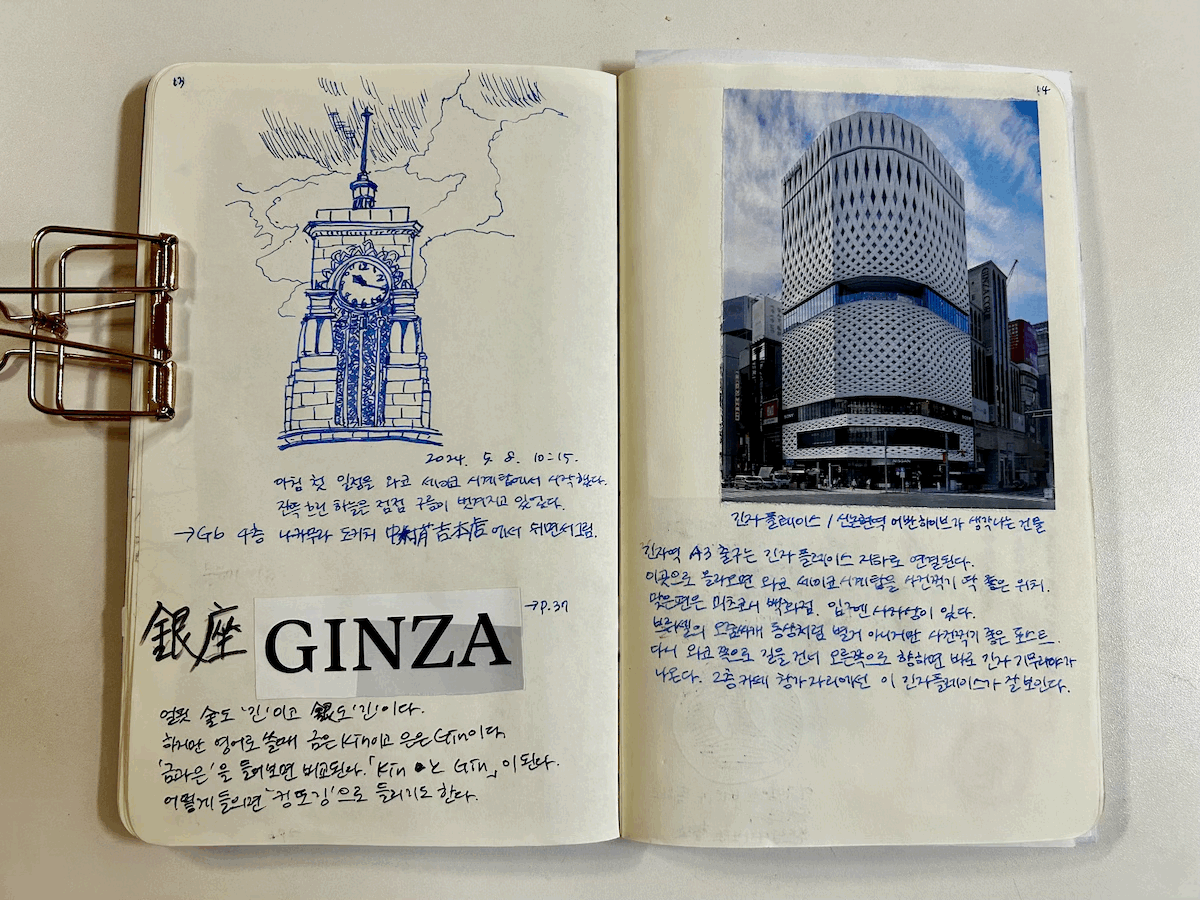 63
2024. 5. 8. 10:15.
아침 첫 일정을 와코 세이코 시계탑에서 시작했다.
잔뜩 흐린 하늘은 점점 구름이 번져지고 있었다.
→G6 4층 나카무라 도키치 中村藤吉本店에서 쉬면서 그림.
銀座
GINZA
→P.37
얼핏 金도 '긴'이고 銀도 '긴'이다.
하지만 영어로 쓸때 금은 Kin이고 은은 Gin이다.
'금과은'을 들어보면 비교된다.「Kin と Gin」이 된다.
어떻게 들으면 '킹또깅'으로 들리기도 한다.
64
긴자 플레이스 / 신논현역 어반하이브가 생각나는 건물
긴자역 A3 출구는 긴자 플레이스 지하로 연결된다.
이곳으로 올라오면 와코 세이코 시계탑을 사진찍기 딱 좋은 위치.
맞은편은 미츠코시 백화점. 입구엔 사자상이 있다.
브뤼셀의 오줌싸개 동상처럼 별거 아니지만 사진찍기 좋은 포스트.
다시 와코 쪽으로 길을 건너 오른쪽으로 향하면 바로 긴자 기무라야가
나온다. 2층 카페 창가 자리에선 이 긴자플레이스가 잘 보인다.